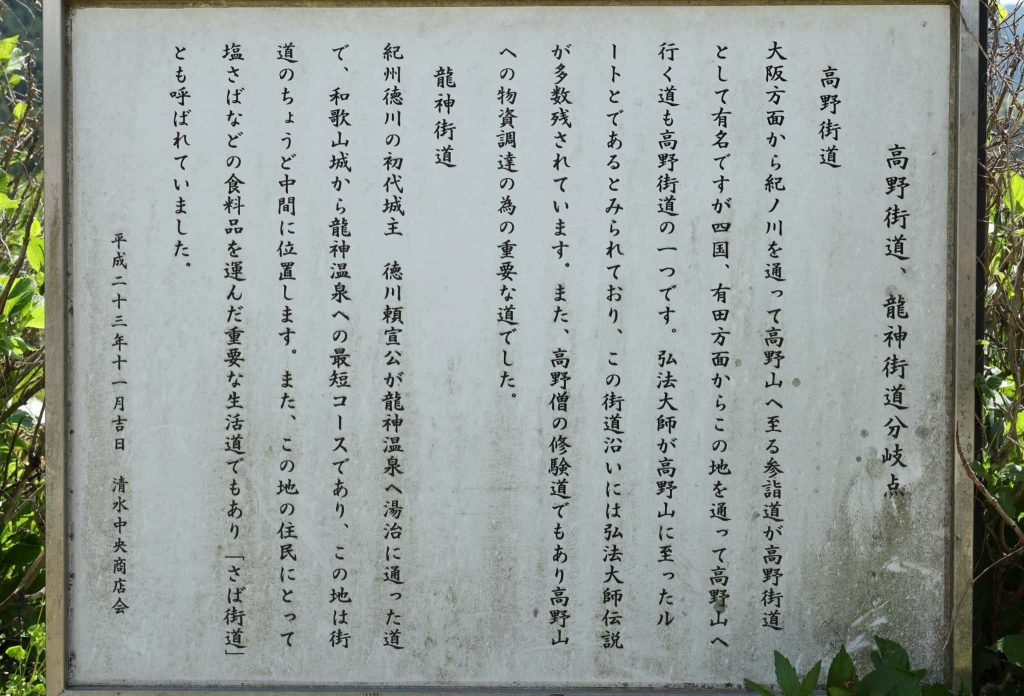 高野街道、龍神街道分岐点
高野街道
大阪方面から紀ノ川を通って高野山へ至る参詣道が高野街道
として有名ですが四国、有田方面からこの地を通って高野山へ
行く道も高野街道の一つです。弘法大師が高野山に至ったル
ートとであるとみられており、この街道沿いには弘法大師伝説
が多数残されています。また、高野僧の修験道でもあり高野山
への物資調達の為の重要な道でした。
龍神街道
紀州徳川の初代城主　徳川頼宣公が龍神温泉へ湯治に通った道
で、和歌山城から龍神温泉への最短コースであり、この地は街
道のちょうど中間に位置します。また、この地の住民にとって
塩さばなどの食料品を運んだ重要な生活道でもあり「さば街道」
とも呼ばれていました。
平成二十三年十一月吉日　清水中央商店会